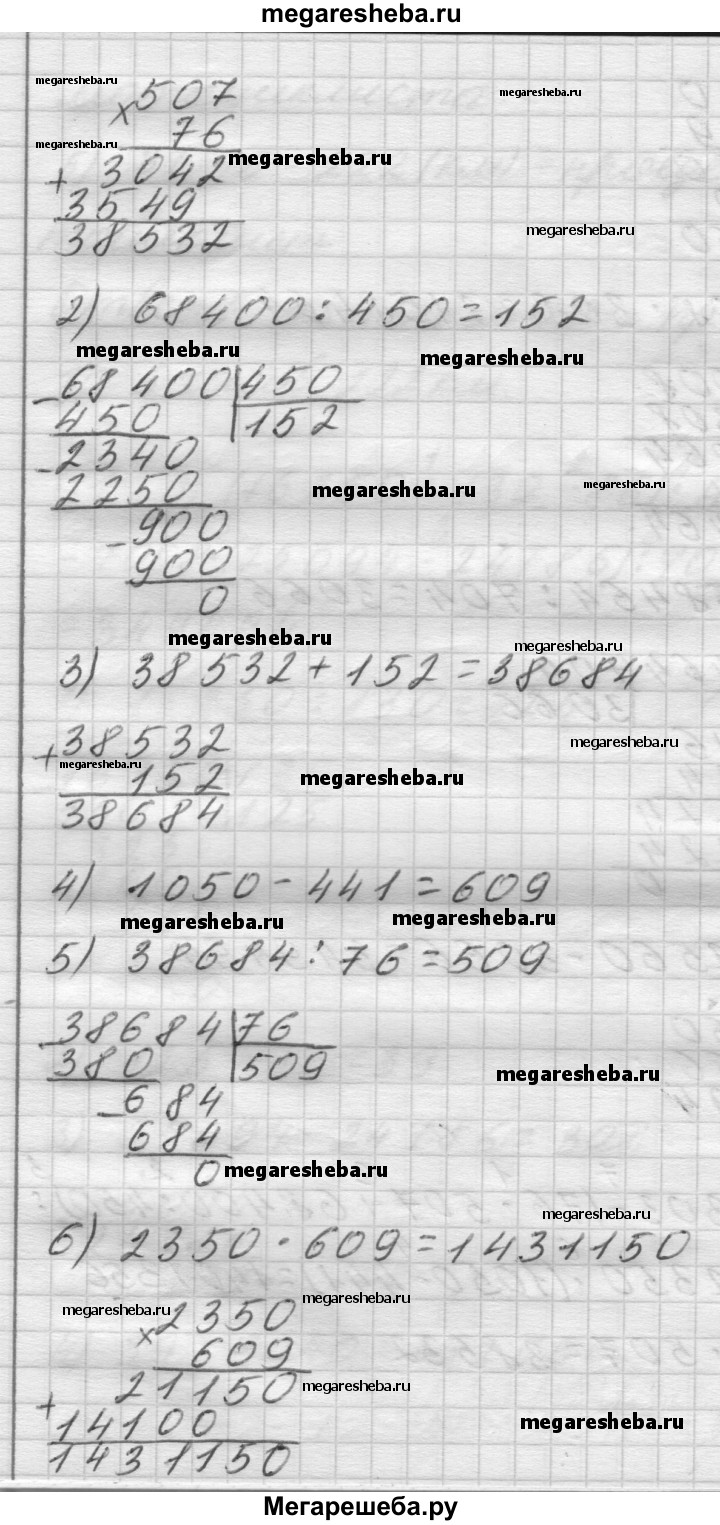 megaresheba.ru
megaresheba.ru
× 507
megaresheba.ru
megaresheba.ru
76
megaresheba.ru
+ 3042
3549
38532
megaresheba.ru
2) 68400 : 450 = 152
megaresheba.ru
megaresheba.ru
- 68400 | 450
450 | 152
- 2340
2250
megaresheba.ru
megaresheba.ru
- 900
900
0
megaresheba.ru
megaresheba.ru
3) 38532 + 152 = 38684
+ 38532
megaresheba.ru
megaresheba.ru
152
megaresheba.ru
38684
4) 1050 - 441 = 609
megaresheba.ru
megaresheba.ru
5) 38684 : 76 = 509
- 38684 | 76
380 | 509
megaresheba.ru
- 684
684
0
megaresheba.ru
megaresheba.ru
6) 2350 · 609 = 1431150
megaresheba.ru
megaresheba.ru
× 2350
609
+ 21150
megaresheba.ru
14100
megaresheba.ru
1431150
Мегарешеба.ру